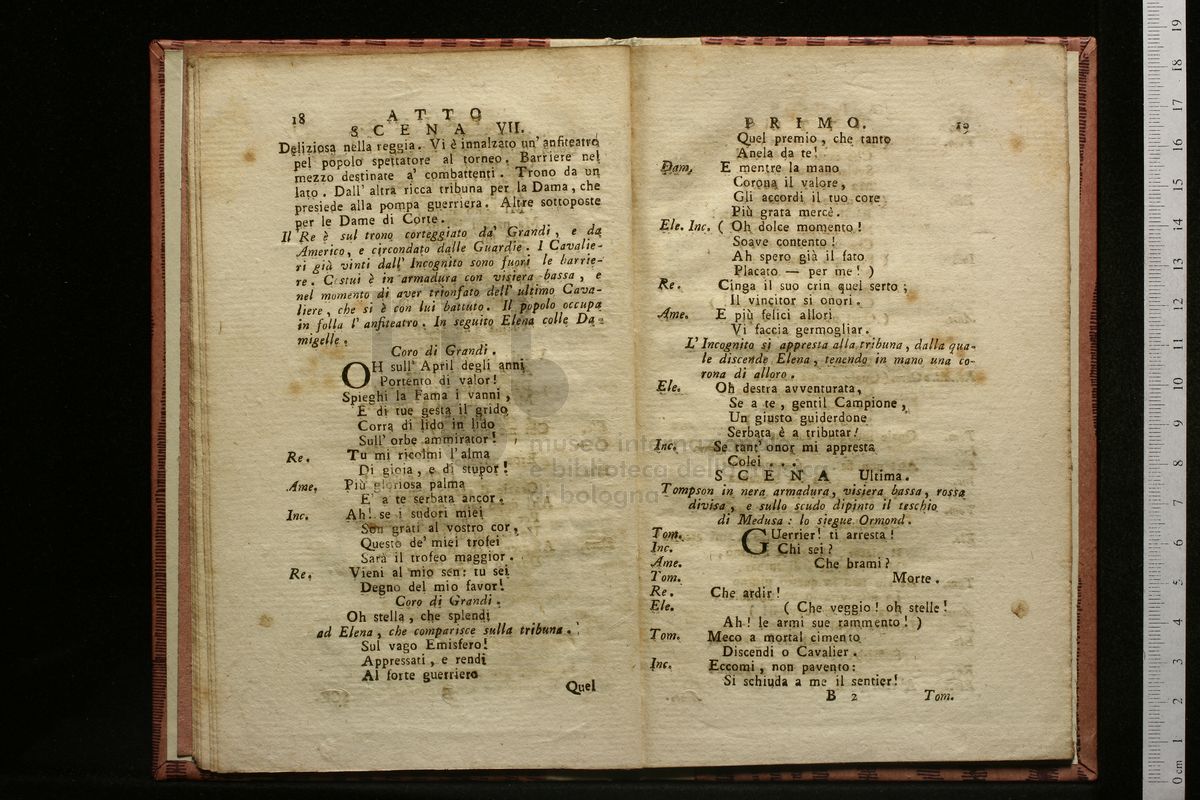 18
ATTO
SCENA VII.
Deliziosa nella reggia. Vi è innalzato un' anfiteatro
pel popolo spettatore al torneo. Barriere nel
mezzo destinate a' combattenti. Trono da un
lato. Dall' altra ricca tribuna per la Dama, che
presiede alla pompa guerriera. Altre sottoposte
per le Dame di Corte.
Il Re è sul trono corteggiato da' Grandi, e da
Americo, e circondato dalle Guardie. I Cavalie-
ri già vinti dall' Incognito sono fuori le barrie-
re. Costui è in armadura con visiera bassa, e
nel momento di aver trionfato dell' ultimo Cava-
liere, che si è con lui battuto. Il popolo occupa
in folla l' anfiteatro. In seguito Elena colle Da-
migelle.
Coro di Grandi.
OH sull' April degli anni
Portento di valor!
Spieghi la Fama i vanni,
E di tue gesta il grido
Corra di lido in lido
Sull' orbe ammirator!
Re. Tu mi ricolmi l'alma
Di gioia, e di stupor!
Ame. Più gloriosa palma
E' a te serbata ancor.
Inc. Ah! se i sudori miei
Son grati al vostro cor,
Questo de' miei trofei
Sarà il trofeo maggior.
Re. Vieni al mio sen: tu sei
Degno del mio favor!
Coro di Grandi.
Oh stella, che splendi
ad Elena, che comparisce sulla tribuna.
Sul vago Emisfero!
Appressati, e rendi
Al forte guerriero
Quel
PRIMO.
19
Quel premio, che tanto
Anela da te!
Dam. E mentre la mano
Corona il valore,
Gli accordi il tuo core
Più grata mercè.
Ele. Inc. ( Oh dolce momento!
Soave contento!
Ah spero già il fato
Placato — per me! )
Re. Cinga il suo crin quel serto;
Il vincitor si onori.
Ame. E più felici allori
Vi faccia germogliar.
L' Incognito si appresta alla tribuna, dalla qua-
le discende Elena, tenendo in mano una co-
rona di alloro.
Ele. Oh destra avventurata,
Se a te, gentil Campione,
Un giusto guiderdone
Serbata è a tributar!
Inc. Se tant' onor mi appresta
Colei . . .
SCENA Ultima.
Tompson in nera armadura, visiera bassa, rossa
divisa, e sullo scudo dipinto il teschio
di Medusa: lo siegue Ormond.
Tom. GUerrier! ti arresta!
Inc. Chi sei?
Ame. Che brami?
Tom. Morte.
Re. Che ardir!
Ele. ( Che veggio! oh stelle!
Ah! le armi sue rammento! )
Tom. Meco a mortal cimento
Discendi o Cavalier.
Inc. Eccomi, non pavento:
Si schiuda a me il sentier!
B 2
Tom.
museo internazionale
e biblioteca della musica
di bologna
0 cm 1 2 3 4 5 6 7 8 9 10 11 12 13 14 15 16 17 18 19